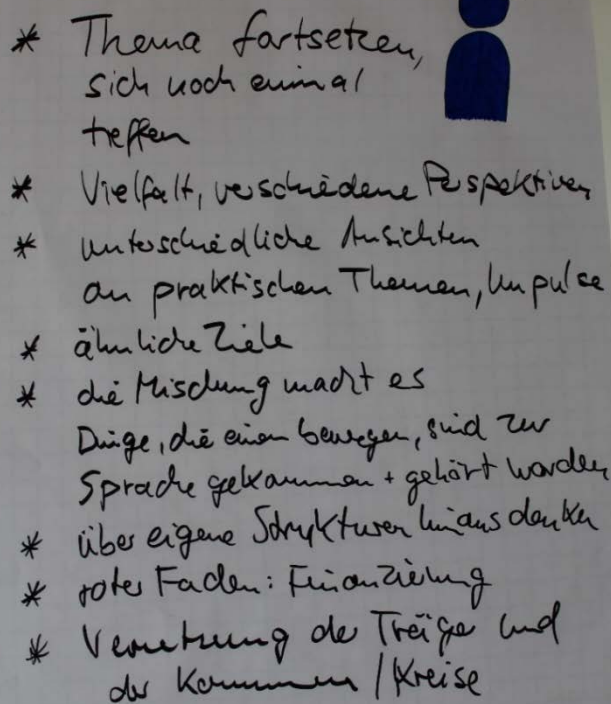 * Thema fortsetzen,
sich noch einmal
treffen
* Vielfalt, verschiedene Perspektiven
* unterschiedliche Ansichten
an praktischen Themen, Impulse
* ähnliche Ziele
* die Mischung macht es
Dinge, die einen bewegen, sind zur
Sprache gekommen + gehört worden
* über eigene Strukturen hinaus denken
* roter Faden: Finanzierung
* Vernetzung der Träger und
der Kommunen / Kreise